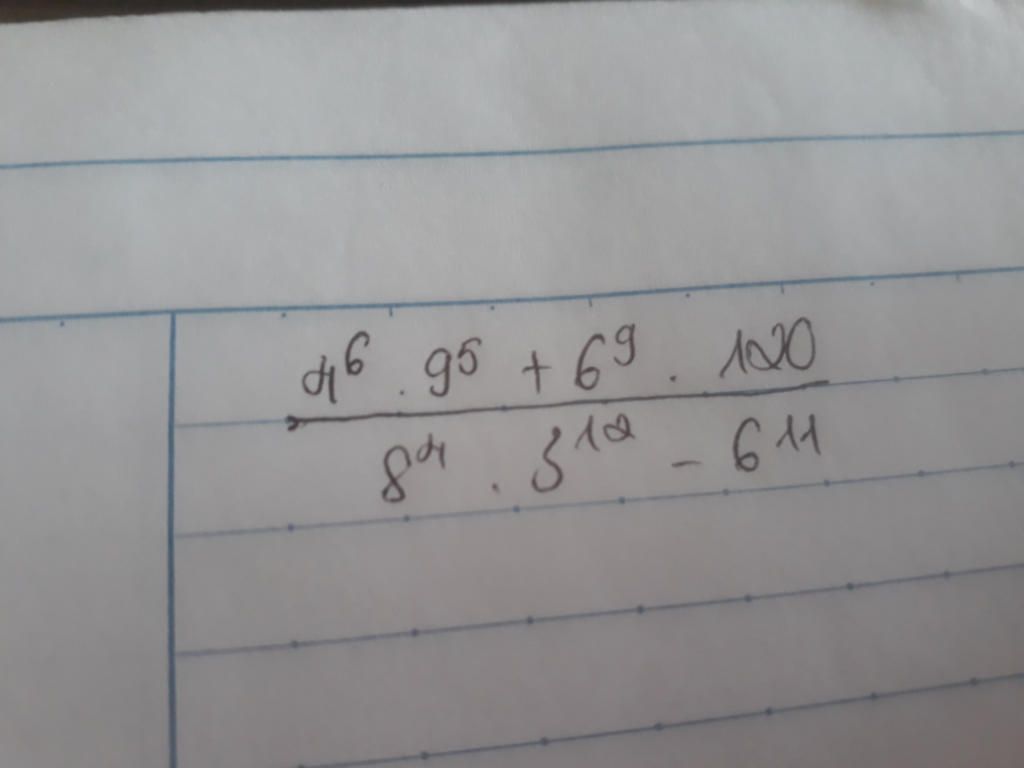 4⁶ . 9⁵ + 6⁹ . 120
8⁴ . 3¹² - 6¹¹